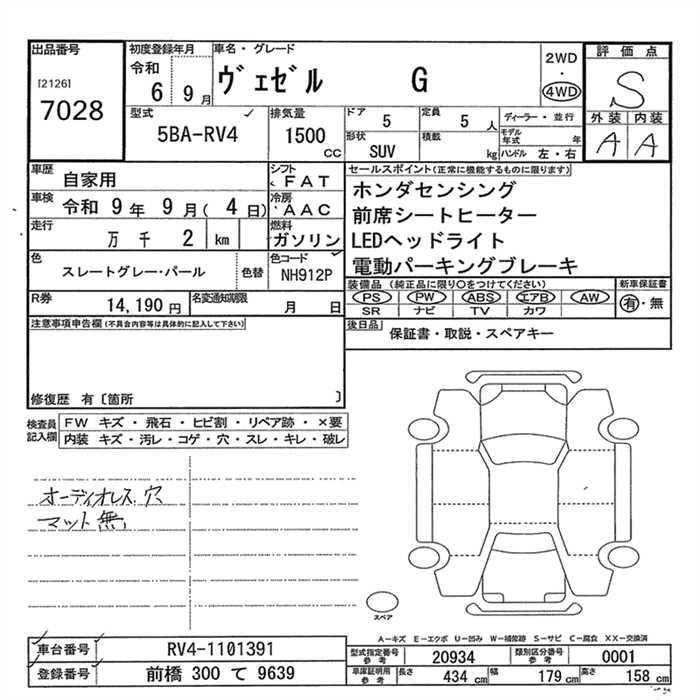 出品番号
[2126]
7028
初度登録年月
令和
6 9月
車名・グレード
ヴェゼル G
2WD
・
4WD
評価点
S
外装 内装
A A
型式
5BA-RV4
排気量
1500
cc
ドア
5
定員
5 人
形状
SUV
積載
kg
ディーラー・並行
モデル
年式 年
ハンドル 左・右
車歴
自家用
シフト
FAT
車検
令和 9 年 9 月( 4 日)
冷房
AAC
走行
万 千 2 km
燃料
ガソリン
色
スレートグレー・パール
色替
色コード
NH912P
R券
14,190 円
名変通知期限
月 日
セールスポイント(正常に機能するものに限ります)
ホンダセンシング
前席シートヒーター
LEDヘッドライト
電動パーキングブレーキ
装備品(純正品に限り○をつけてください)
PS PW ABS エアB AW
SR ナビ TV カワ
新車保証書
有・無
後日品
保証書・取説・スペアキー
注意事項申告欄(不具合内容等は具体的に記入して下さい)
修復歴 有〔箇所 〕
検査員
記入欄
FW キズ・飛石・ヒビ割・リペア跡・×要
内装 キズ・汚レ・コゲ・穴・スレ・キレ・破レ
オーディオレス穴
マット無
スペア
A−キズ E−エクボ U−凹み W−補修跡 S−サビ C−腐食 XX−交換済
車台番号
RV4-1101391
登録番号
前橋 300 て 9639
型式指定番号
参考
20934
類別区分番号
参考
0001
車庫証明用
参考
長さ
434 cm
幅
179 cm
高さ
158 cm